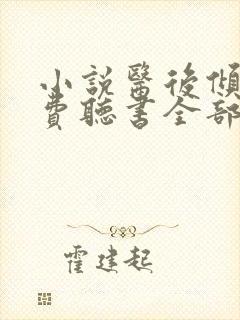 小説醫後傾
費聽書全部
霍建起